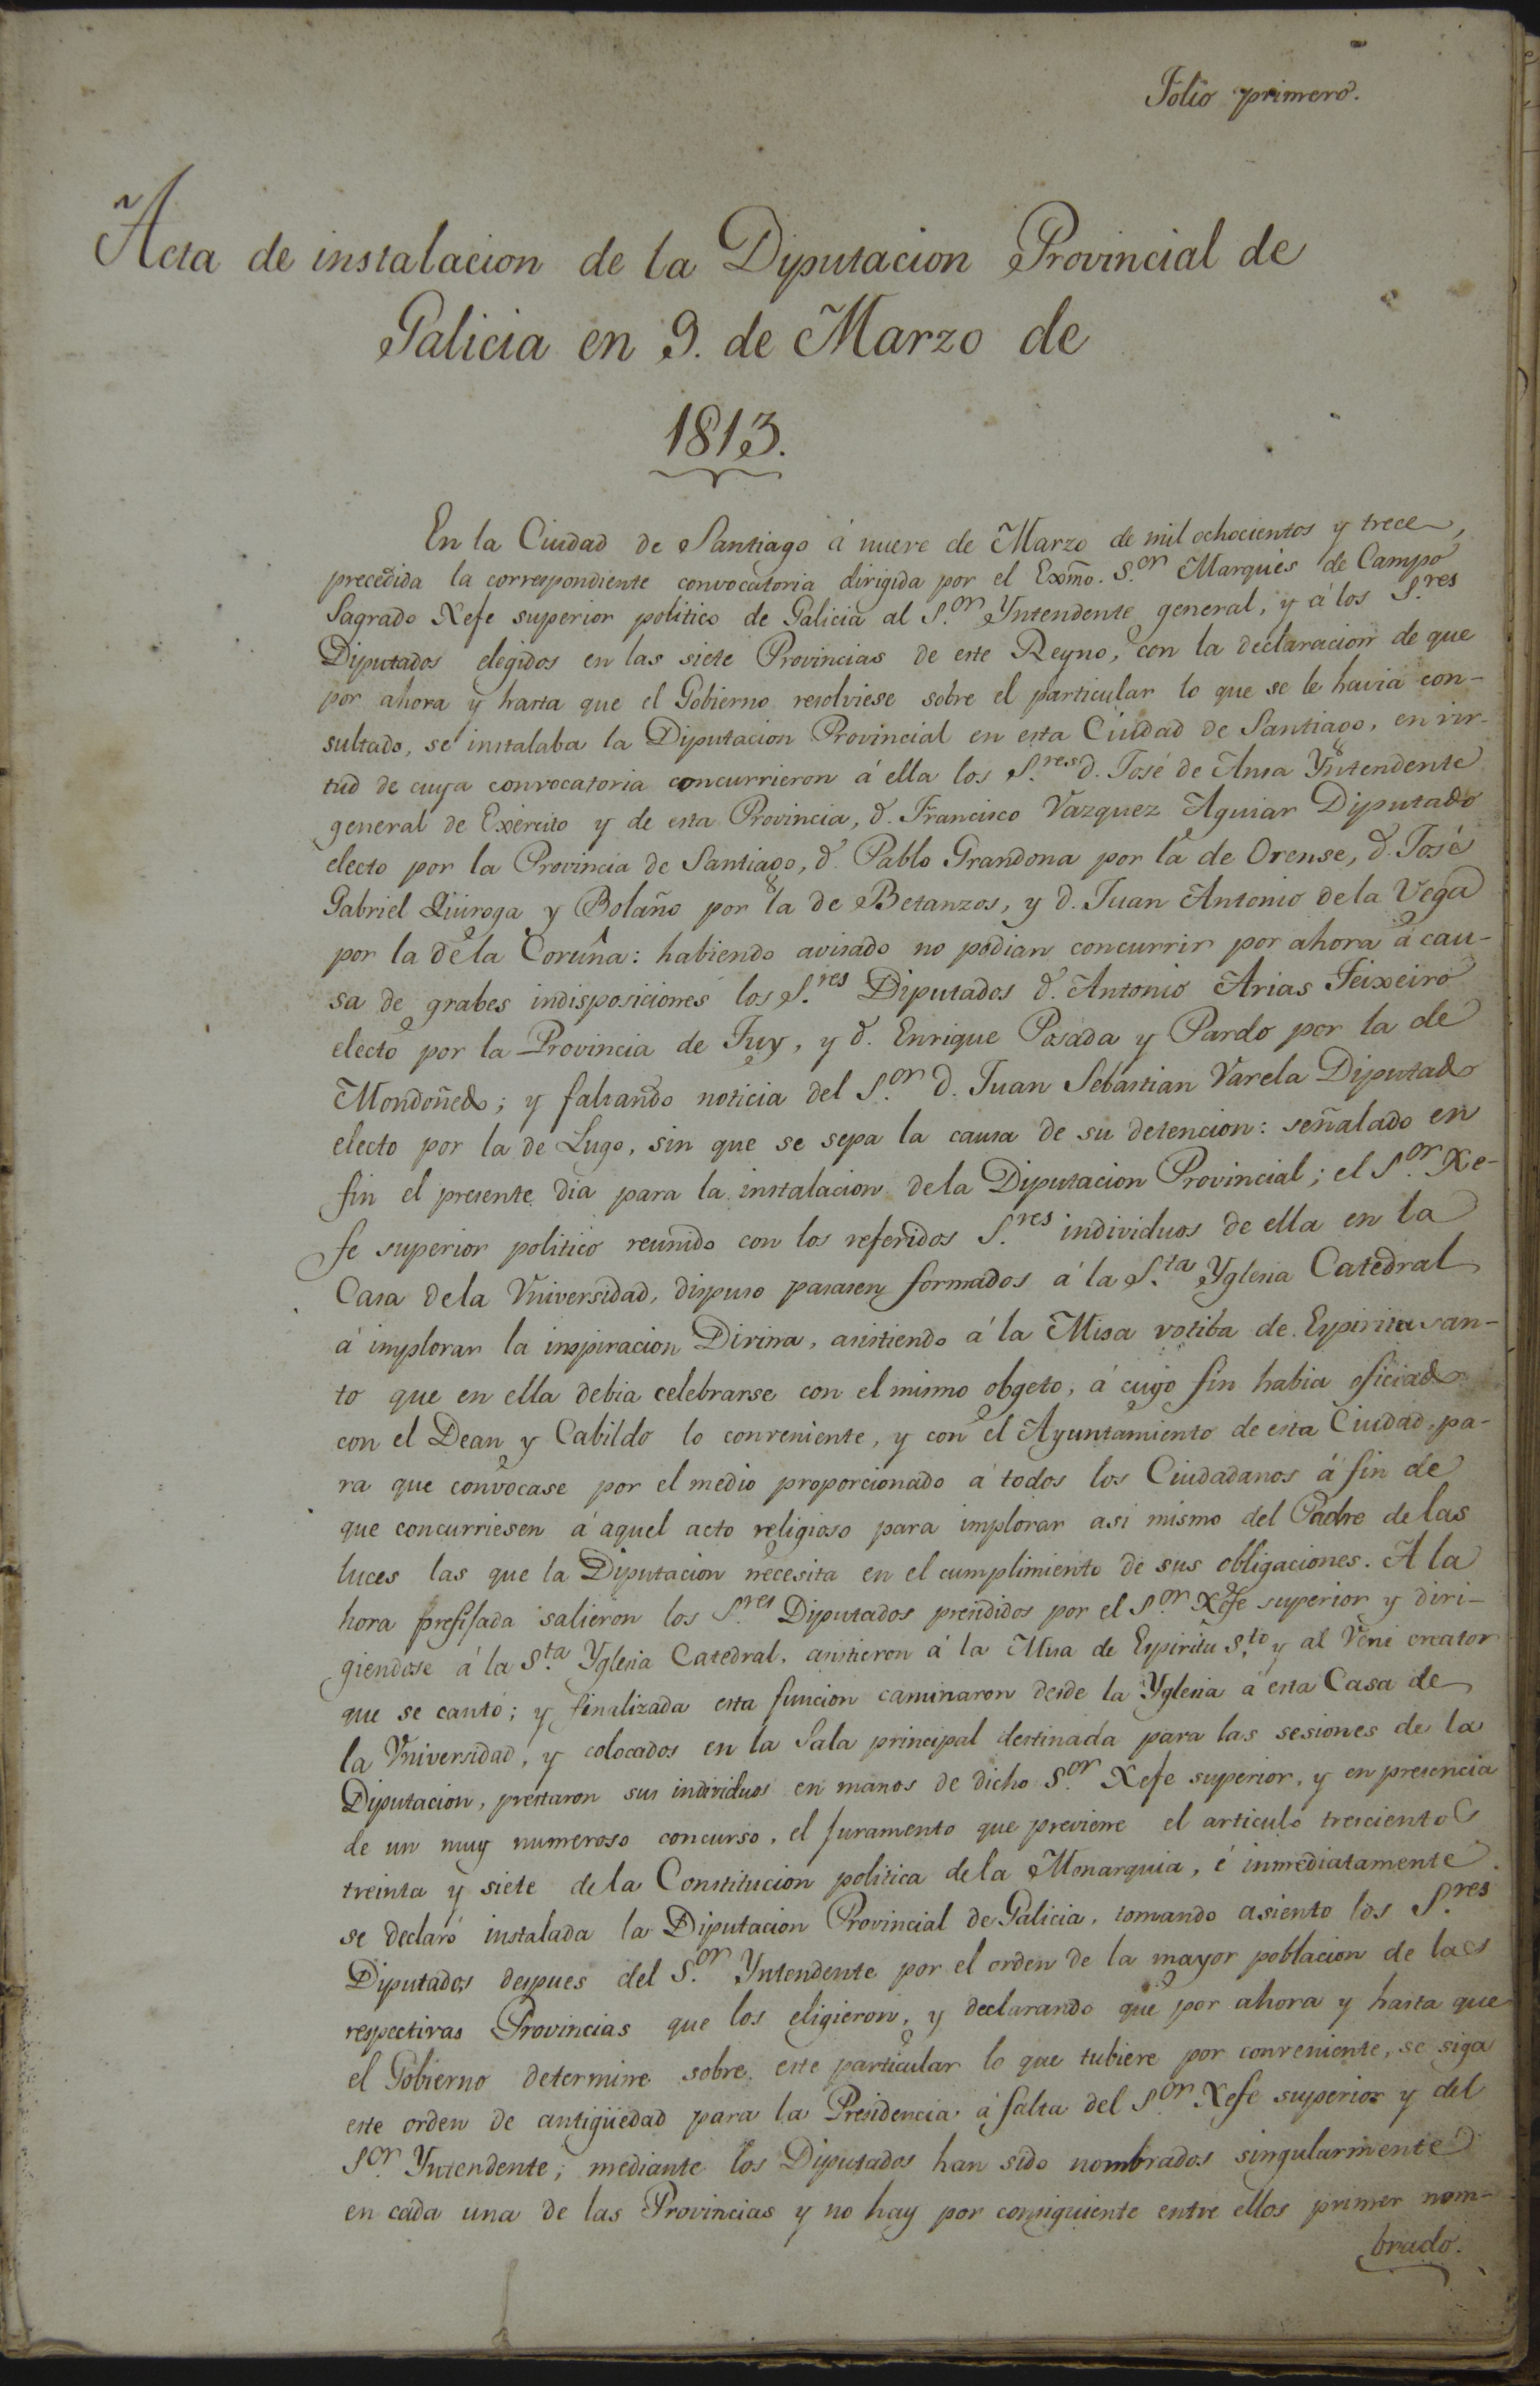 Folio primero.
Acta de instalacion de la Diputacion Provincial de
Galicia en 9. de Marzo de
1813.
En la Ciudad de Santiago á nueve de Marzo de mil ochocientos y trece,
precedida la correspondiente convocatoria dirigida por el Exmo. S.or Marques de Campo
Sagrado Xefe superior politico de Galicia al S.or Yntendente general, y á los S.res
Diputados elegidos en las siete Provincias de este Reyno, con la declaracion de que
por ahora y hasta que el Gobierno resolviese sobre el particular lo que se le havia con-
sultado, se instalaba la Diputacion Provincial en esta Ciudad de Santiago, en vir-
tud de cuya convocatoria concurrieron á ella los S.res d. José de Ansa Yntendente
general de Exército y de esta Provincia, d. Francisco Vazquez Aguiar Diputado
electo por la Provincia de Santiago, d. Pablo Grandona por la de Orense, d. José
Gabriel Quiroga y Bolaño por la de Betanzos, y d. Juan Antonio de la Vega
por la de la Coruña: habiendo avisado no podian concurrir por ahora á cau-
sa de grabes indisposiciones los S.res Diputados d. Antonio Arias Teixeiro
electo por la Provincia de Tuy, y d. Enrique Posada y Pardo por la de
Mondoñedo; y faltando noticia del S.or d. Juan Sebastian Varela Diputado
electo por la de Lugo, sin que se sepa la causa de su detencion: señalado en
fin el presente dia para la instalacion de la Diputacion Provincial; el S.or Xe-
fe superior politico reunido con los referidos S.res individuos de ella en la
Casa de la Vniversidad, dispuso pasasen formados á la S.ta Yglesia Catedral
á implorar la inspiracion Divina, asistiendo á la Misa votiba de Espiritu san-
to que en ella debia celebrarse con el mismo obgeto, á cuyo fin habia oficiado
con el Dean y Cabildo lo conveniente, y con el Ayuntamiento de esta Ciudad, pa-
ra que convocase por el medio proporcionado á todos los Ciudadanos á fin de
que concurriesen á aquel acto religioso para implorar asi mismo del Padre de las
luces las que la Diputacion necesita en el cumplimiento de sus obligaciones. A la
hora prefijada salieron los S.res Diputados presididos por el S.or Xefe superior y diri-
giendose á la S.ta Yglesia Catedral, asistieron á la Misa de Espiritu S.to y al Veni creator
que se cantó; y finalizada esta funcion caminaron desde la Yglesia á esta Casa de
la Vniversidad, y colocados en la Sala principal destinada para las sesiones de la
Diputacion, prestaron sus individuos en manos de dicho S.or Xefe superior, y en presencia
de un muy numeroso concurso, el juramento que previene el articulo trescientos
treinta y siete de la Constitucion politica de la Monarquia, é inmediatamente
se declaró instalada la Diputacion Provincial de Galicia, tomando asiento los S.res
Diputados despues del S.or Yntendente por el orden de la mayor poblacion de las
respectivas Provincias que los eligieron, y declarando que por ahora y hasta que
el Gobierno determine sobre este particular lo que tubiere por conveniente, se siga
este orden de antigüedad para la Presidencia á falta del S.or Xefe superior y del
S.or Yntendente; mediante los Diputados han sido nombrados singularmente
en cada una de las Provincias y no hay por consiguiente entre ellos primer nom-
brado.